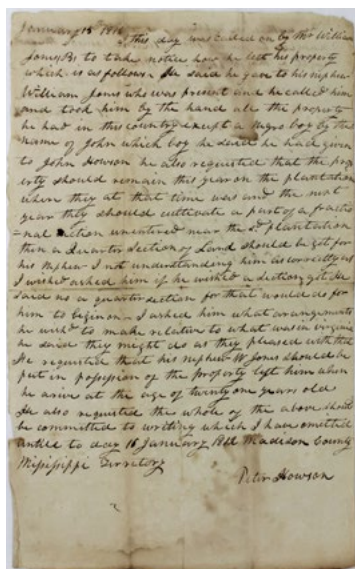 January 15th 1811
This day was called on by Mr William
Jones Sr to take notice how he left his property
which is as follows. He said he gave to his nephew
William Jones who was present and he called him
and took him by the hand all the property
he had in this country except a Negro boy by the
name of John which boy he said he had given
to John Howson he also requested that the prop
erty should remain this year on the plantation
where they at that time was and the next
year they should cultivate a part of a fractio
=nal section unentered near the sd plantation
then a Quarter Section of Land should be got for
his Nephew I not understanding him as correctly as
I wished asked him if he wished a section got He
said no a quarter section for that would do for
him to begin on. I asked him what arrangements
he wishd to make relative to what was in virginia
he said they might do as they pleased with that
He requested that his nephew W. Jones should be
put in possession of the property left him when
he arive at the age of twenty one years old
He also requested the whole of the above should
be committed to writing which I have omitted
untill to day 16 January 1811 Madison County
Mississippi Territory
Peter Howson